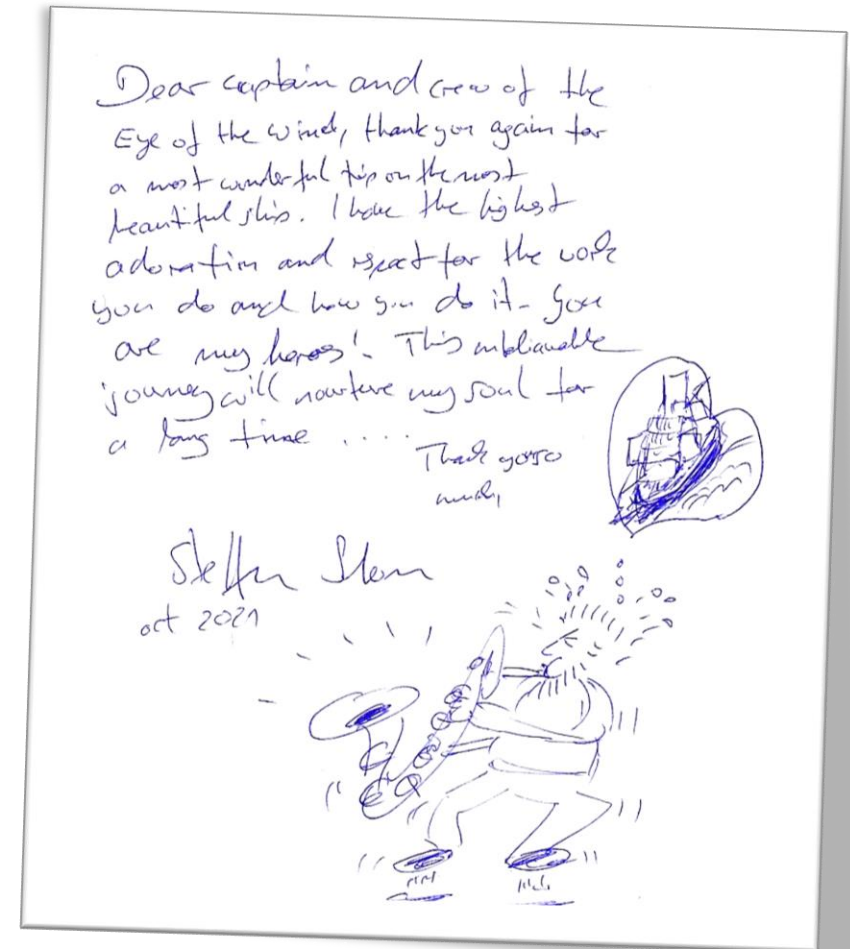 Dear captain and crew of the
Eye of the Wind, thank you again for
a most wonderful trip on the most
beautiful ship. I have the highest
adoration and respect for the work
you do and how you do it. You
are my heroes! This unbelievable
journey will nurture my soul for
a long time ....
Thank you so
much,
oct 2021